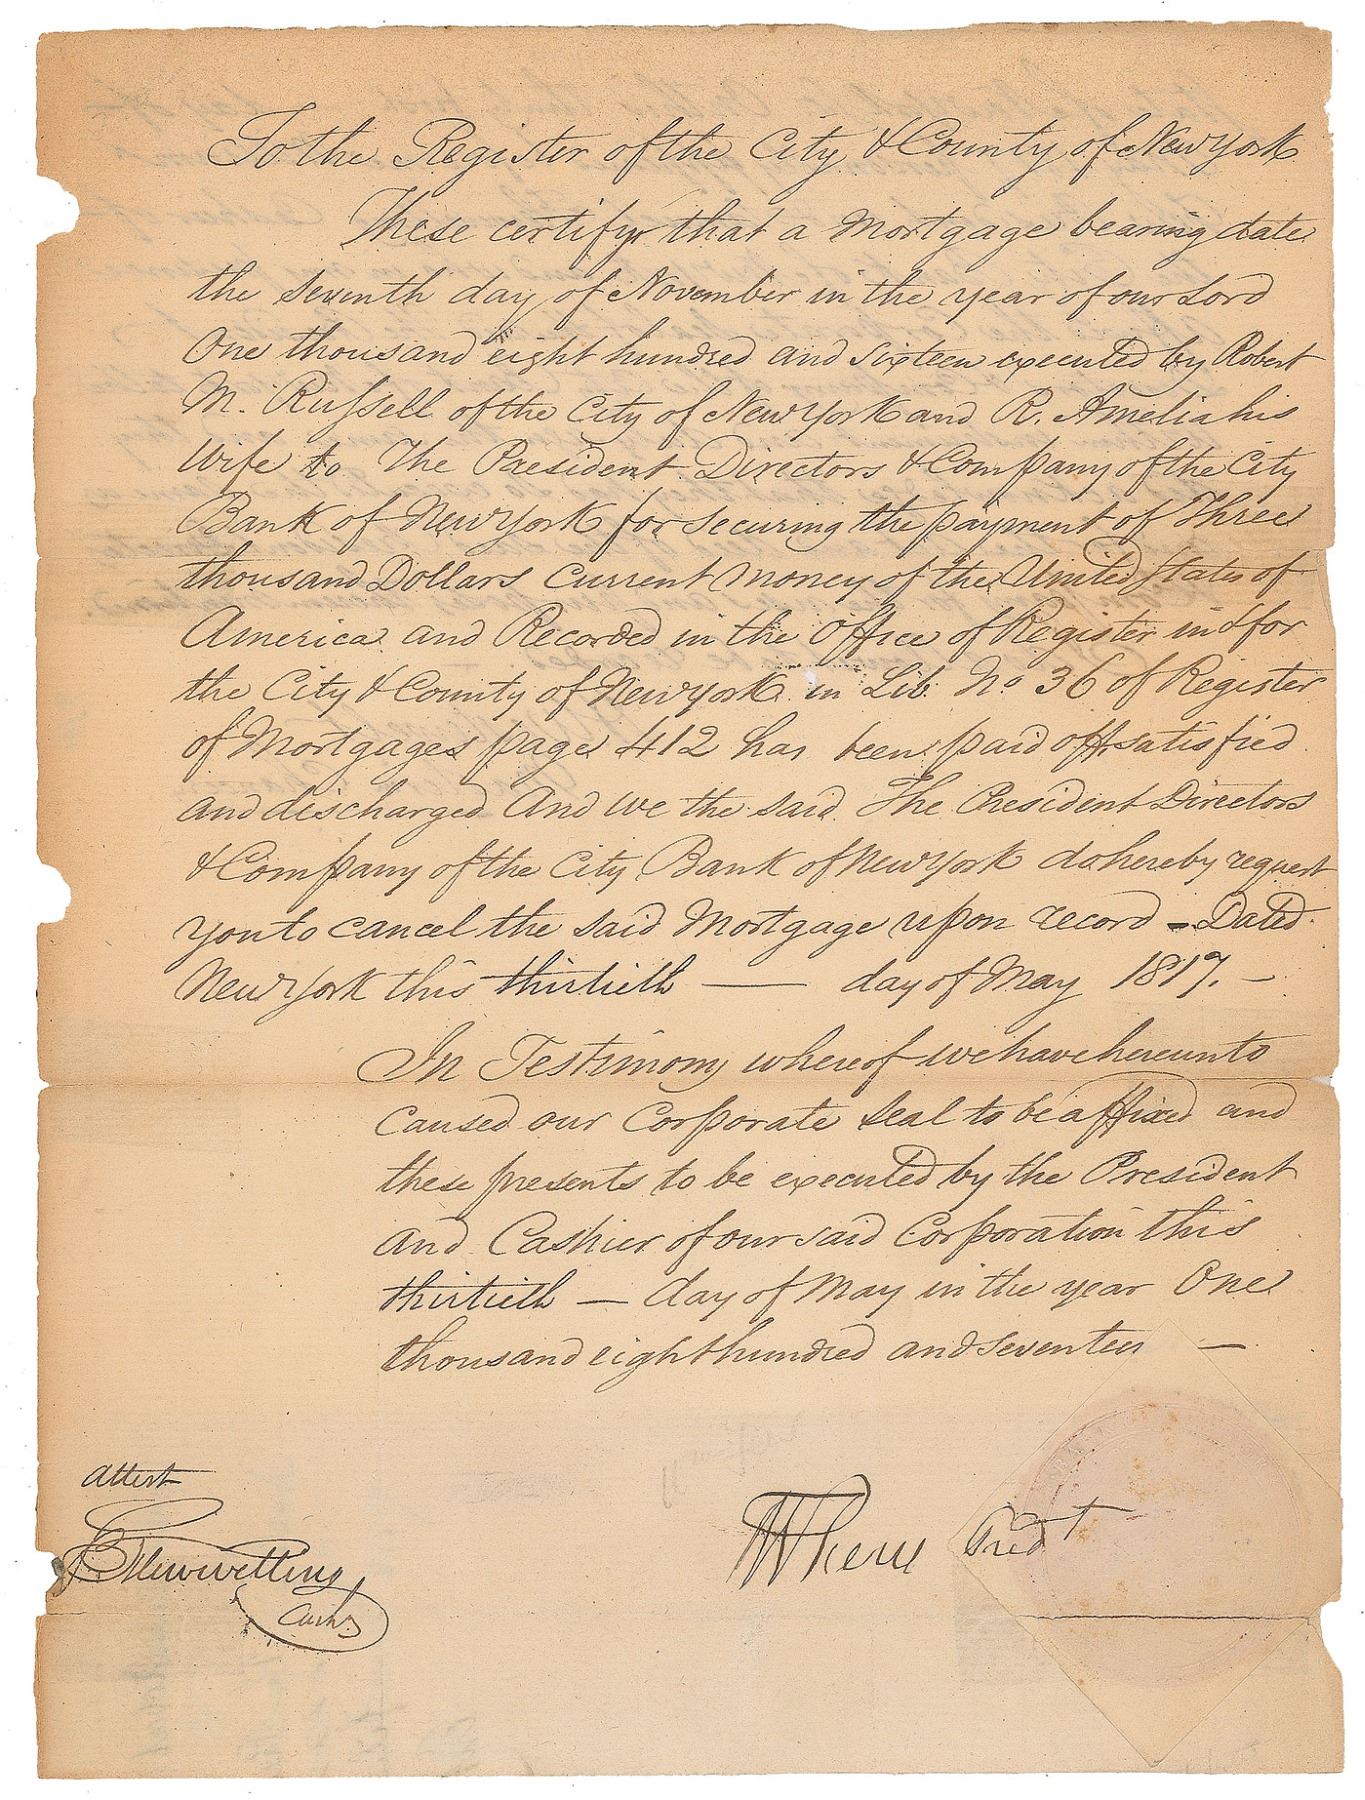 To the Register of the City & County of New York
These certify that a Mortgage bearing date
the seventh day of November in the year of our Lord
One thousand eight hundred and sixteen executed by Robert
M. Russell of the City of New York and R. Amelia his
Wife to The President Directors & Company of the City
Bank of New York for securing the payment of Three
thousand Dollars current money of the United States of
America and Recorded in the office of Register in & for
the City & County of New York in Lib. No 36 of Register
of Mortgages page 412 has been paid off satisfied
and discharged And we the said The President Directors
& Company of the City Bank of New York do hereby request
you to cancel the said Mortgage upon record - Dated
New York this thirtieth — day of May 1817. -
In Testimony whereof we have hereunto
caused our Corporate Seal to be affixed and
these presents to be executed by the President
and Cashier of our said Corporation this
thirtieth — day of May in the year One
thousand eight hundred and seventeen —
Attest
Cashr
Presdt